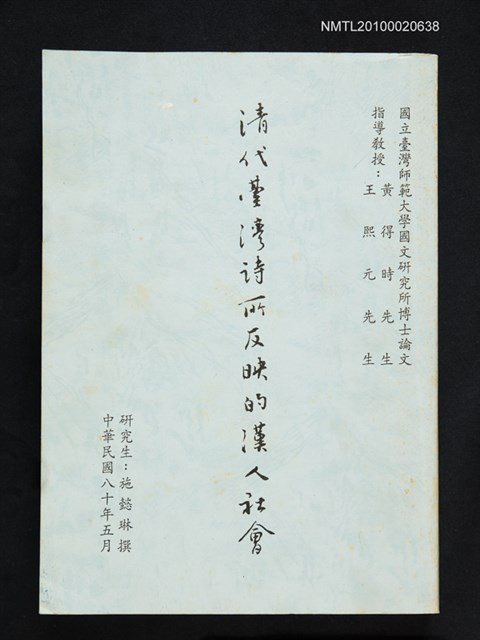 NMTL20100020638
國立臺灣師範大學國文研究所博士論文
指導教授：黃得時先生
王熙元先生
清代臺灣詩所反映的漢人社會
研究生：施懿琳撰
中華民國八十年五月